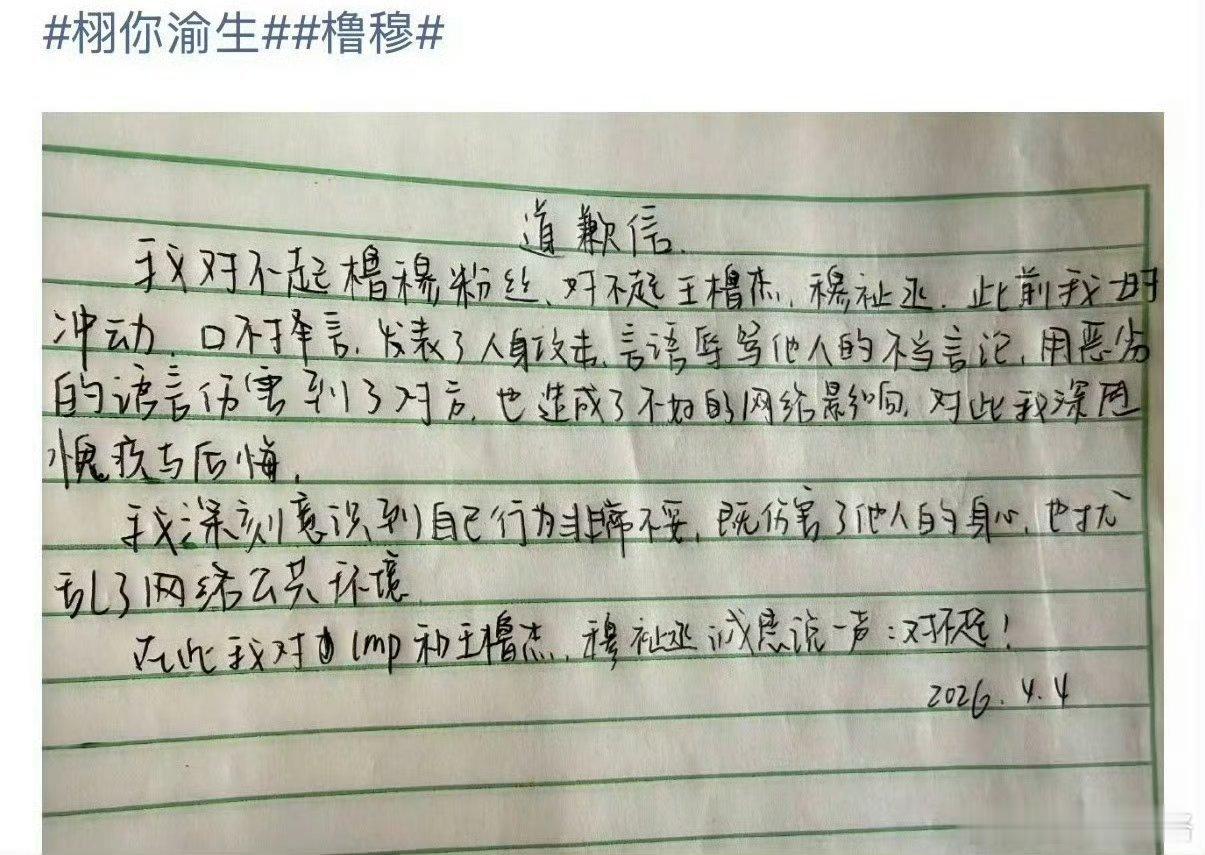 #栩你渝生##橹穆#
道歉信.
我对不起橹穆粉丝、对不起王橹杰、穆祉丞.此前我一时
冲动、口不择言,发表了人身攻击、言语辱骂他人的不当言论,用恶劣
的语言伤害到了对方,也造成了不好的网络影响,对此我深感
愧疚与后悔,
我深刻意识到自己行为非常不妥,既伤害了他人的身心,也扰
乱了网络公共环境.
在此我对 lmp 和王橹杰、穆祉丞诚恳说一声:对不起!
2026.4.4